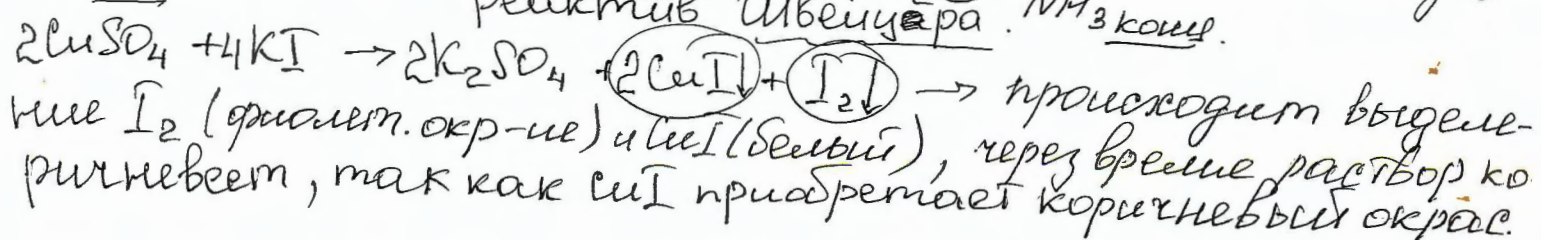 реактив Швейцера. NH3 конц.
2CuSO4 + 4KI → 2K2SO4 + 2CuI↓ + I2↓ → происходит выделе-
ние I2 (фиолет. окр-ие) и CuI (белый), через время раствор ко
ричневеет, так как CuI приобретает коричневый окрас.